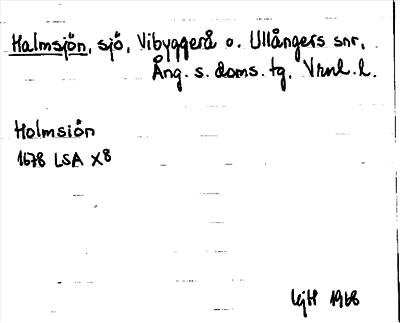 Halmsjön, sjö, Vibyggerå o. Ullångers snr,
Ång. s. doms. tg. Vrnl. l.
Holmsiön
1678 LSA X8
LjH 1968